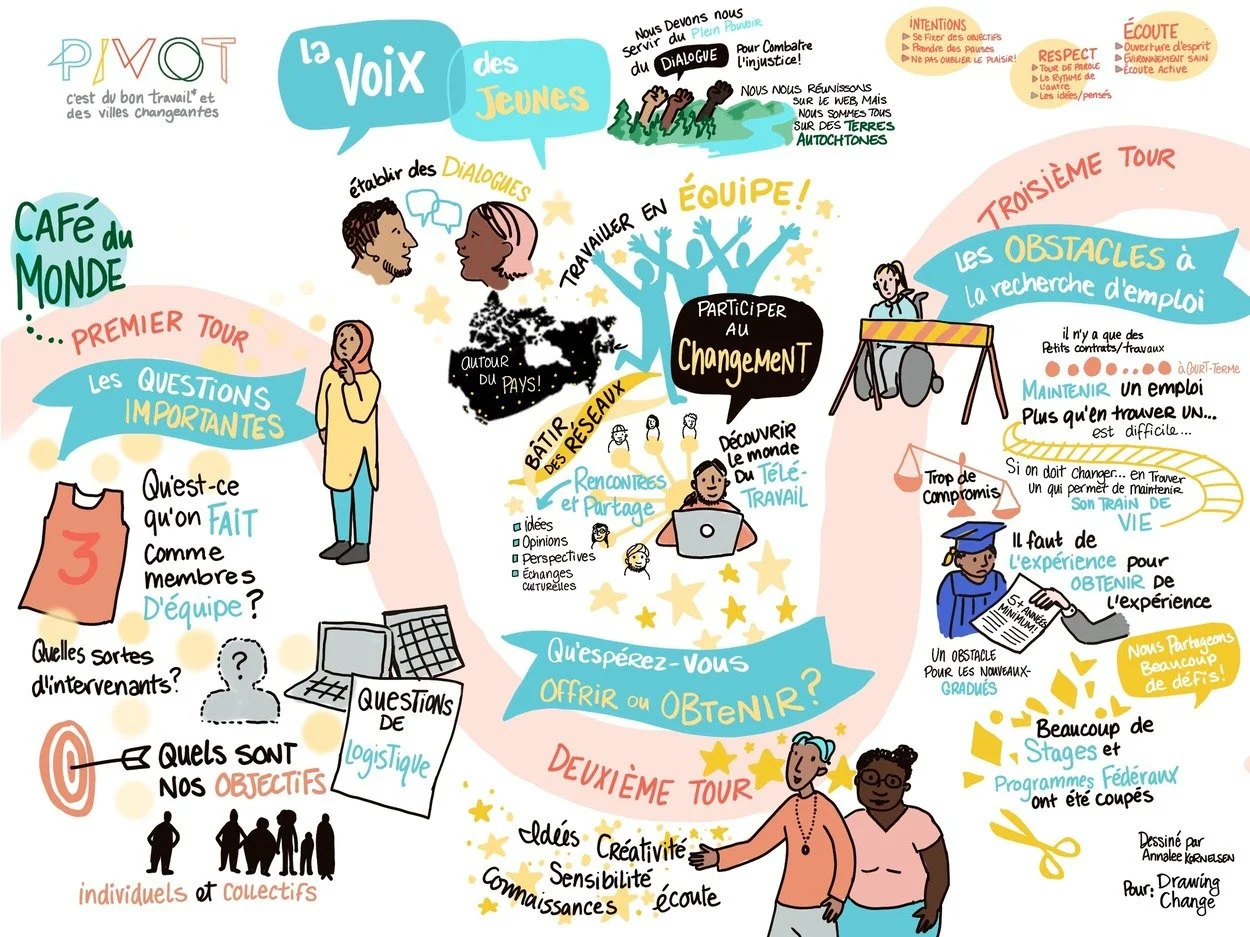 PIVOT
c'est du bon travail* et
des villes changeantes
la
Voix
des
Jeunes
Nous Devons nous
servir du Plein Pouvoir
du DIALOGUE Pour Combatre
l'injustice!
NOUS NOUS RÉUNISSONS
SUR LE WEB, MAIS
NOUS SOMMES TOUS
SUR DES TERRES
AUTOCHTONES
INTENTIONS
Se Fixer des OBJECTIFS
Prendre des pauses
Ne pas oublier le plaisir!
RESPECT
TOUR DE PAROLE
Le RYTHME de
L'autre
Les idées/pensés
ÉCOUTE
Ouverture d'esprit
EVIRONNEMENT SAIN
Écoute Active
CAFé du
MONDE
PREMIER TOUR
Les QUESTIONS
IMPORTANTES
3
Qu'est-ce
qu'on FAIT
Comme
membres
D'équipe?
Quelles sortes
d'intervenants?
?
QUESTIONS
DE
Logistique
QUELS SONT
NOS OBJECTIFS
individuels et collectifs
établir des DIALOGUES
AUTOUR
DU PAYS!
TRAVAILLER EN ÉQUIPE!
PARTICIPER
AU
CHANGEMENT
BÂTIR
DES RÉSEAUX
Rencontres
et Partage
Idées
Opinions
Perspectives
Échanges
culturelles
DÉCOUVRIR
le monde
Du TÉLÉ-
TRAVAIL
Qu'espérez-Vous
OFFRIR ou OBTENIR?
DEUXIÈME TOUR
Idées Créativité
Sensibilité
Connaissances écoute
TROISIÈME TOUR
Les OBSTACLES à
la recherche d'emploi
il n'y a que des
Petits contrats/travaux
à COURT-TERME
MAINTENIR un emploi
Plus qu'en trouver UN...
est difficile...
Trop de
Compromis
Si on doit changer... en Trouver
un qui permet de maintenir
Son TRAIN DE
VIE
Il faut de
L'expérience pour
OBTENIR De
L'expérience
5+ ANNÉES
MINIMUM!
UN OBSTACLE
POUR LES NOUVEAUX-
GRADUÉS
Nous Partageons
Beaucoup
de défis!
Beaucoup de
Stages et
Programmes Fédéraux
ont été coupés
Dessiné par
Annalee KORNELSEN
Pour: Drawing
Change